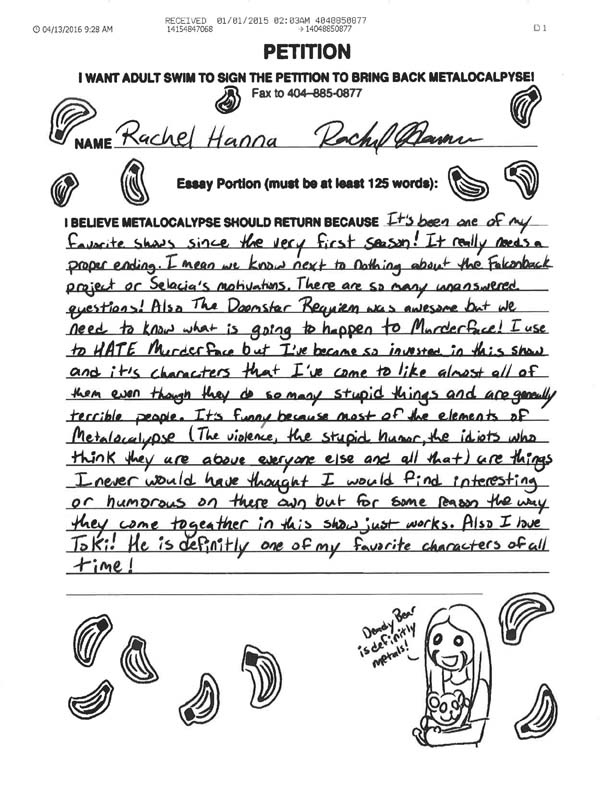 RECEIVED 01/01/2015 02:03AM 4048850877
04/13/2016 9:28 AM 14154847068 →14048850877 1
PETITION
I WANT ADULT SWIM TO SIGN THE PETITION TO BRING BACK METALOCALPYSE!
Fax to 404–885-0877
NAME Rachel Hanna Rachel Hanna
Essay Portion (must be at least 125 words):
I BELIEVE METALOCALYPSE SHOULD RETURN BECAUSE It's been one of my
favorite shows since the very first season! It really needs a
proper ending. I mean we know next to nothing about the Falconback
project or Selacia's motivations. There are so many unanswered
questions! Also The Doomstar Requiem was awesome but we
need to know what is going to happen to Murderface! I use
to HATE Murderface but I've became so invested in this show
and it's characters that I've come to like almost all of
them even though they do so many stupid things and are generally
terrible people. It's funny because most of the elements of
Metalocalypse (The violence, the stupid humor, the idiots who
think they are above everyone else and all that) are things
I never would have thought I would find interesting
or humorous on there own but for some reason the way
they come togeather in this show just works. Also I love
Toki! He is definitly one of my favorite characters of all
time!
Deady Bear
is definitly
metals!